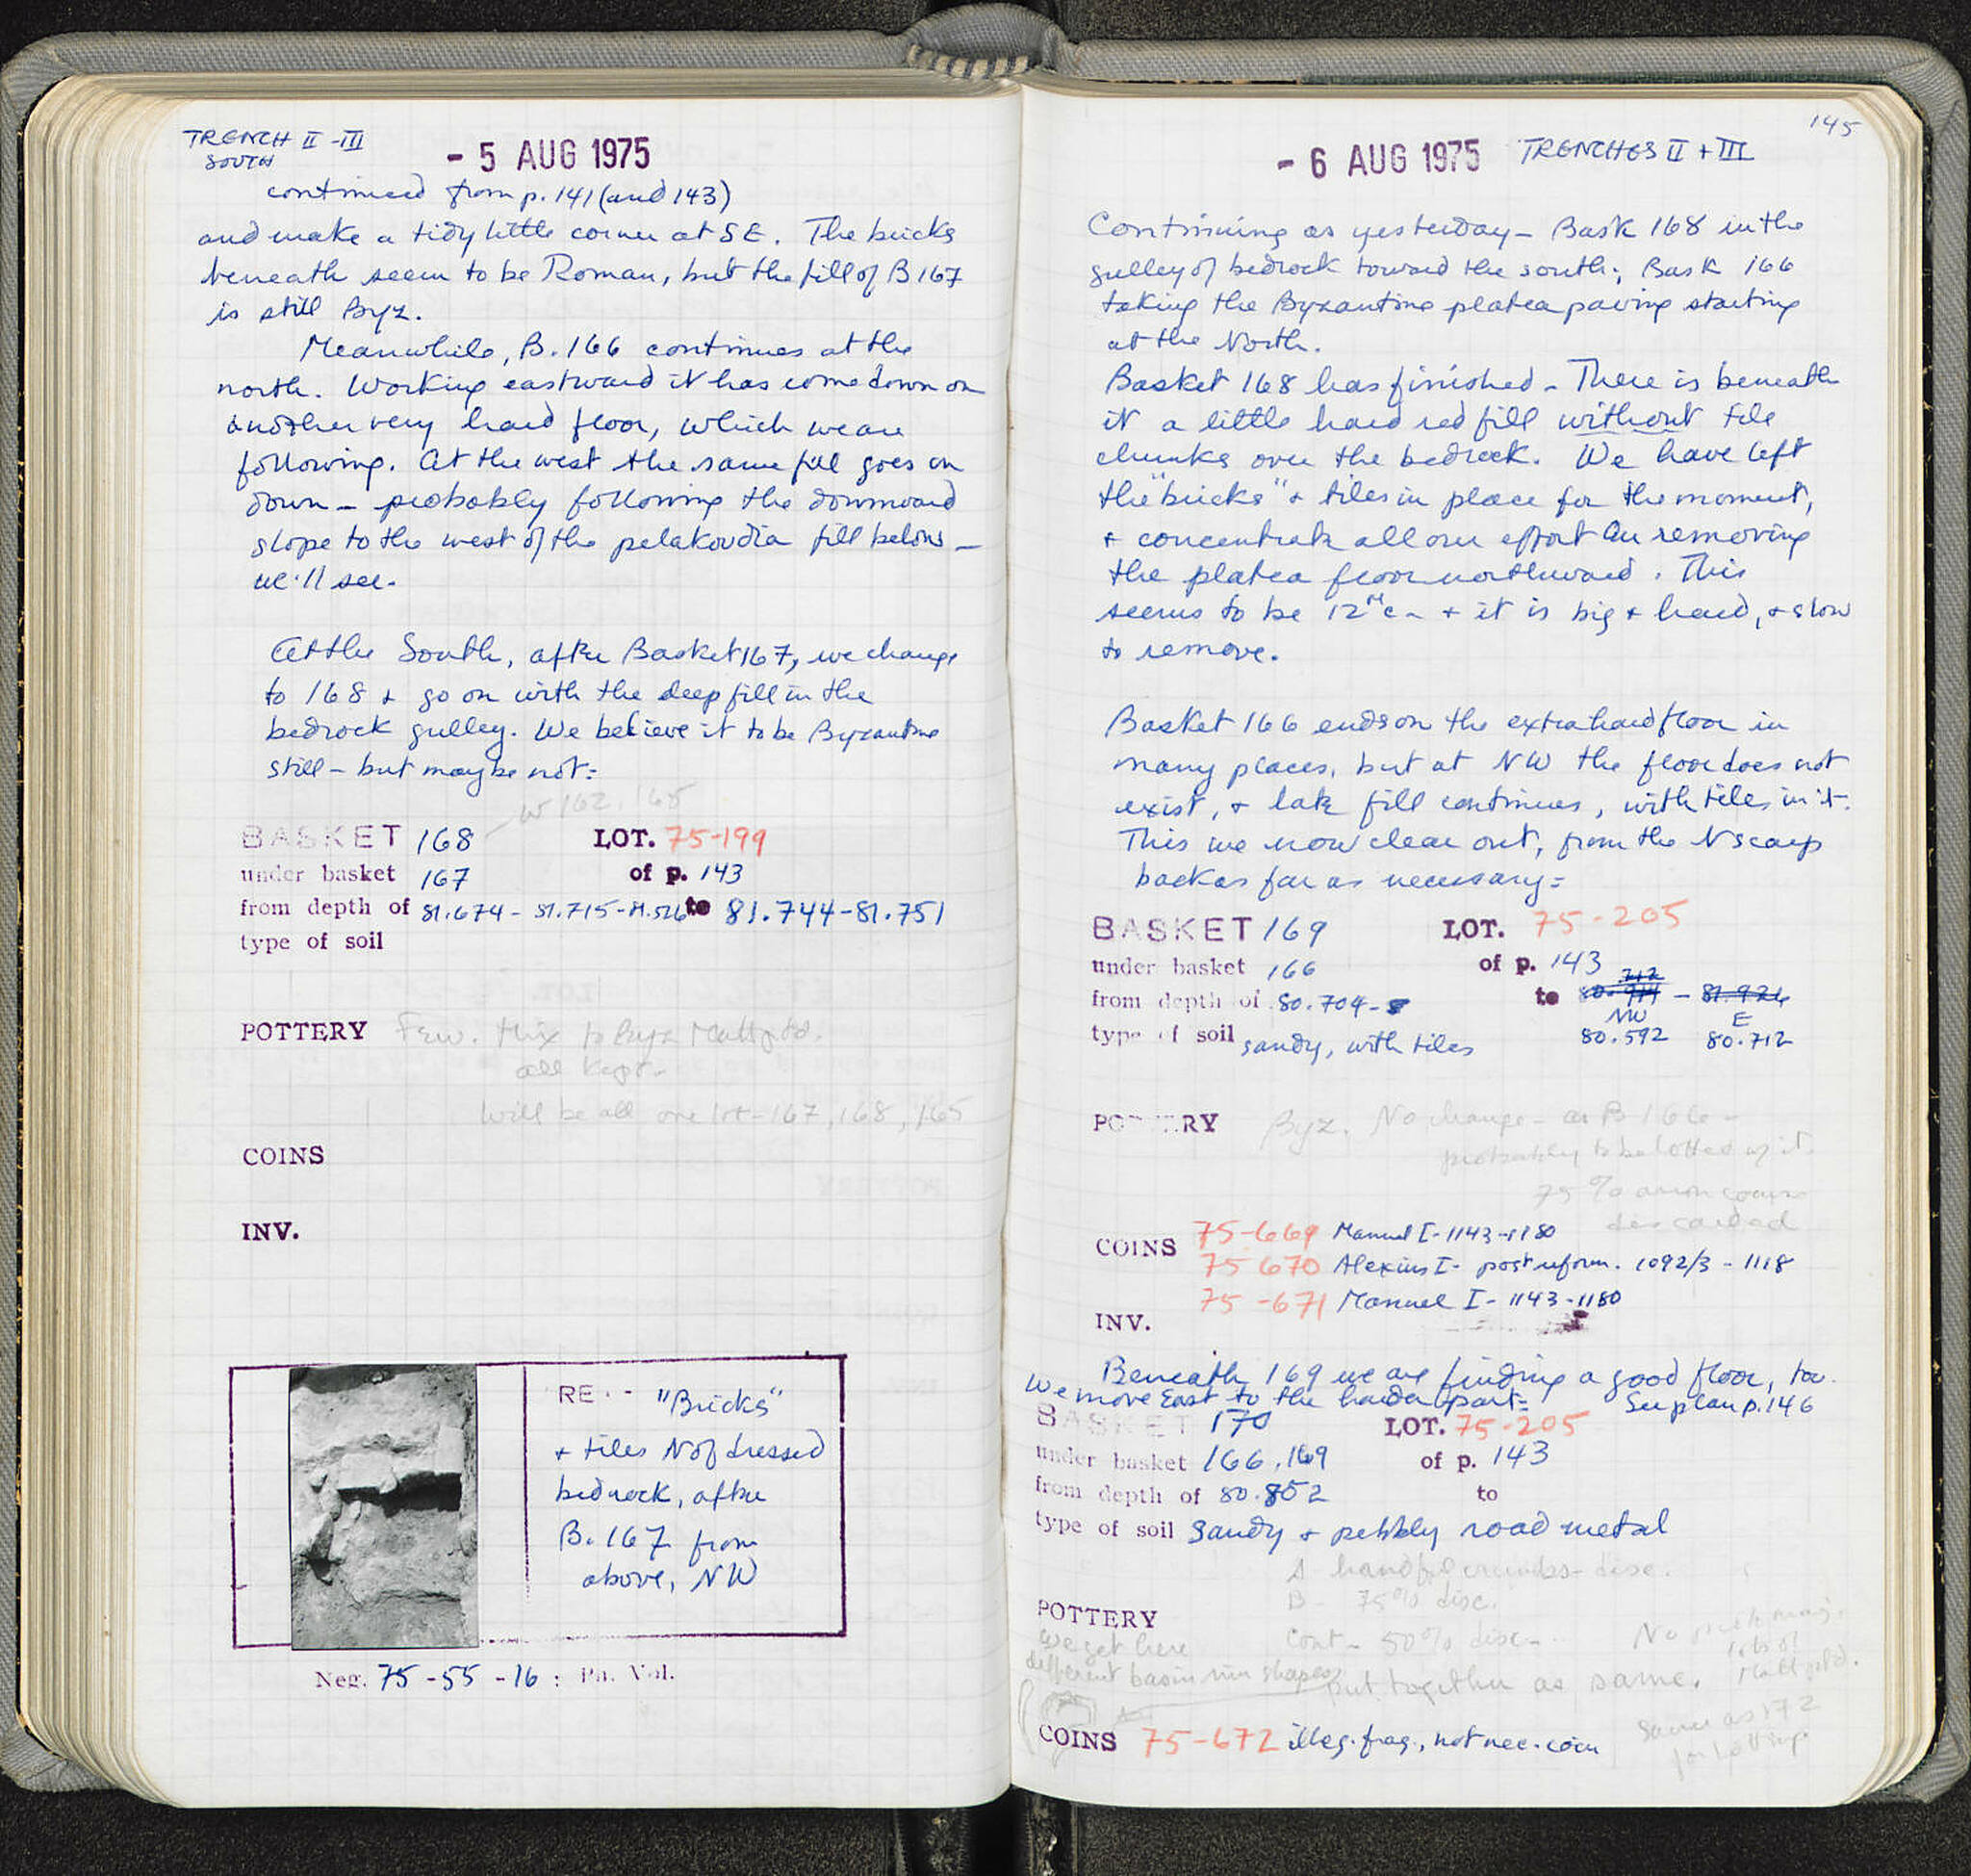 TRENCH II - III
SOUTH
- 5 AUG 1975
continued from p. 141 (and 143)
and make a tidy little corner at SE. The bricks
beneath seem to be Roman, but the fill of B 167
is still Byz.
Meanwhile, B. 166 continues at the
north. Working eastward it has come down on
another very hard floor, which we are
following. At the west the same fill goes on
down - probably following the downward
slope to the west of the pelakoudia fill below -
we'll see.
At the South, after Basket 167, we change
to 168 + go on with the deep fill in the
bedrock gulley. We believe it to be Byzantine
still - but maybe not:
w 162, 165
BASKET 168 LOT. 75-199
under basket 167 of p. 143
from depth of 81.674 - 81.715 - 81.526 to 81.744 - 81.751
type of soil
POTTERY Few. Mix to Byz Matt ptd.
all kept -
Will be all one lot - 167, 168, 165
COINS
INV.
RE "Bricks"
+ tiles N of dressed
bedrock, after
B. 167 from
above, NW
Neg. 75-55-16 : Ph. Vol.
145
- 6 AUG 1975 TRENCHES II + III
Continuing as yesterday - Bask 168 in the
gulley of bedrock toward the south; Bask 166
taking the Byzantine platea paving starting
at the North.
Basket 168 has finished - There is beneath
it a little hard red fill without tile
chunks over the bedrock. We have left
the "bricks" + tiles in place for the moment,
+ concentrate all our effort on removing
the platea floor northward. This
seems to be 12th c - + it is big + hard, + slow
to remove.
Basket 166 ends on the extra hard floor in
many places, but at NW the floor does not
exist, + late fill continues, with tiles in it.
This we now clear out, from the N scarp
back as far as necessary:
BASKET 169 LOT. 75-205
under basket 166 of p. 143
712
from depth of 80.704 - to 80.914 - 81.926
NW E
type of soil sandy, with tiles 80.592 80.712
POTTERY Byz. No change - as B 166 -
probably to be lotted w it.
75% anon coarse
discarded
COINS 75-669 Manuel I - 1143-1180
75 670 Alexius I - post reform. 1092/3 - 1118
75 -671 Manuel I - 1143-1180
INV.
Beneath 169 we are finding a good floor, too.
We move East to the harder part: See plan p. 146
BASKET 170 LOT. 75-205
under basket 166, 169 of p. 143
from depth of 80.852 to
type of soil Sandy + pebbly road metal
A handful crumbs - disc.
B - 75% disc.
POTTERY
we get here Cont - 50% disc -
No
lots of
different basin rim shapes put together as same. Matt ptd.
COINS 75-672 illeg. frag., not nec. coin
Same as 172
for lotting